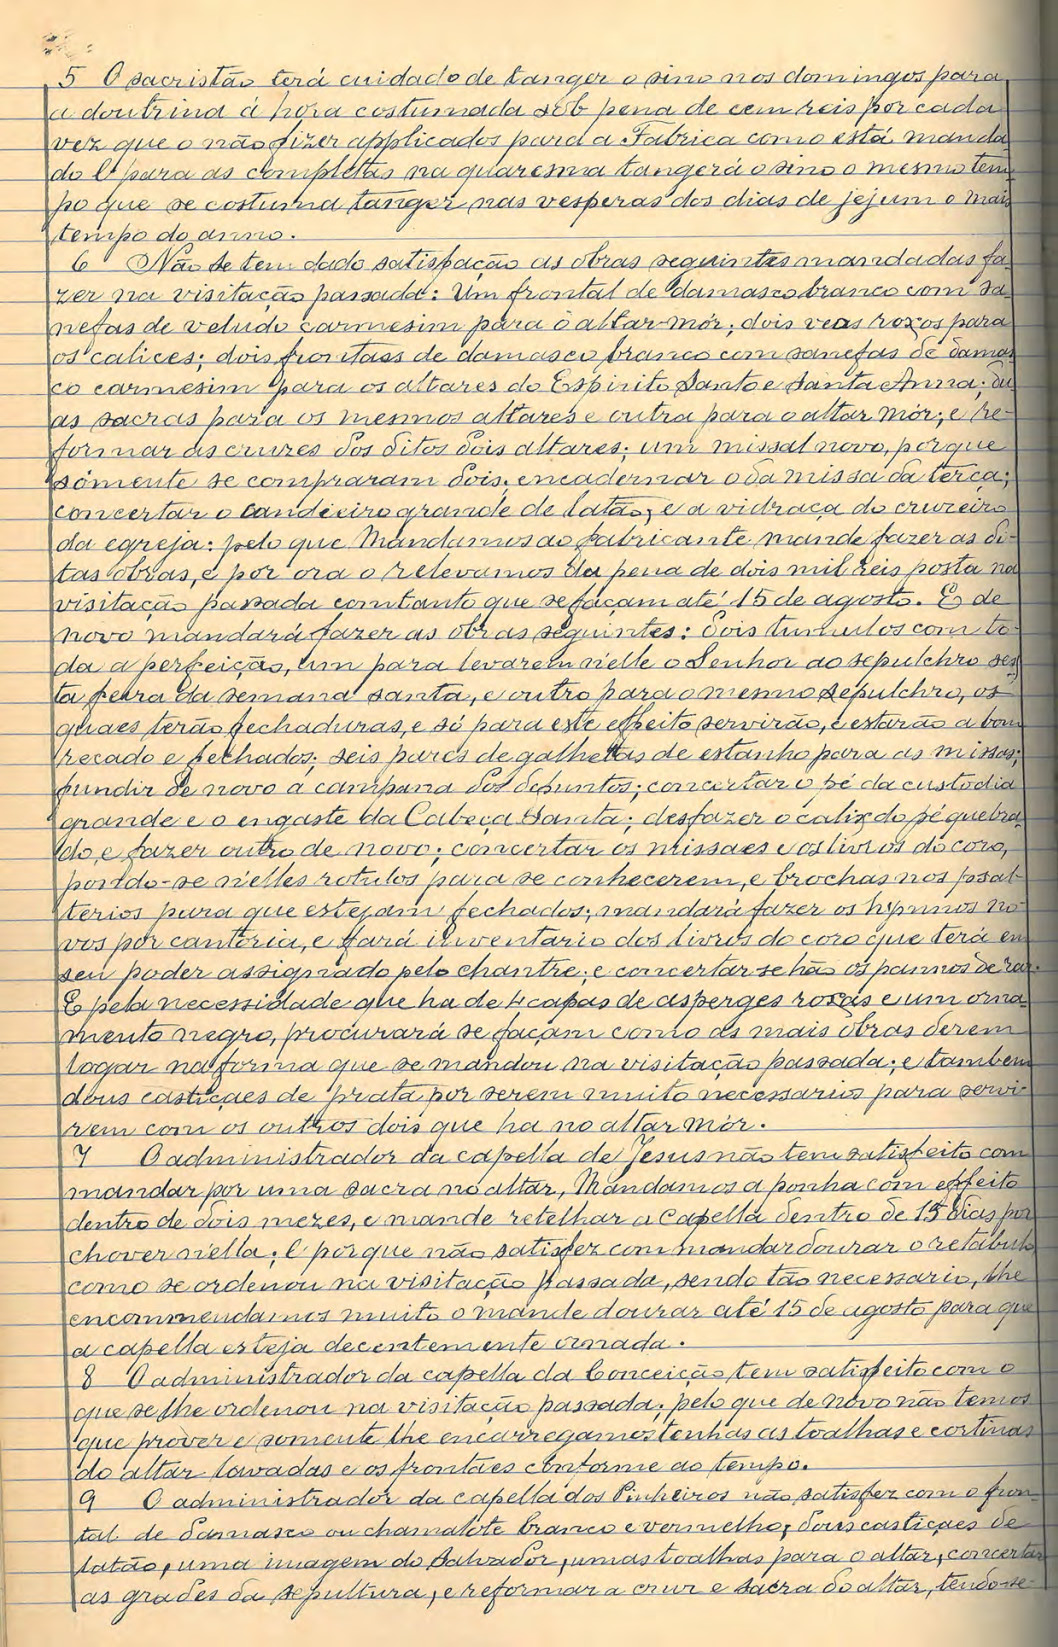 5 O sacristão terá cuidado de tanger o sino nos domingos para
a doutrina á hora costumada sob pena de cem reis por cada
vez que o não fizer applicados para a Fabrica como está manda-
do E para as completas na quaresma tangerá o sino o mesmo tem-
po que se costuma tanger nas vesperas dos dias de jejum o mais
tempo do anno.
6 Não se tem dado satisfação as obras seguintes mandadas fa-
zer na visitação passada: Um frontal de damasco branco com sa-
nefas de veludo carmesim para o altar-mór; dois veos roxos para
os calices; dois frontaes de damasco branco com sanefas de damas-
co carmesim para os altares do Espirito Santo e Santa Anna; du-
as sacras para os mesmos altares e outra para o altar mór; e re-
formar as cruzes dos ditos dois altares; um missal novo, porque
sómente se compraram dois; encadernar o da missa da terça;
concertar o candieiro grande de latão; e a vidraça do cruzeiro
da egreja: pelo que Mandamos ao fabricante mande fazer as di-
tas obras, e por ora o relevamos da pena de dois mil reis posta na
visitação passada comtanto que se façam até 15 de agosto. E de
novo mandará fazer as obras seguintes: dois tumulos com to-
da a perfeição, um para levarem n'elle o Senhor ao sepulchro ses-
ta feira da semana santa, e outro para o mesmo sepulchro, os
quaes terão fechaduras, e só para este effeito servirão, e estarão a bom
recado e fechados; seis pares de galhetas de estanho para as missas;
fundir de novo a campana dos defuntos; concertar o pé da custodia
grande e o engaste da Cabeça Santa; desfazer o calix do pé quebra-
do, e fazer outro de novo; concertar os missaes e os livros do coro,
pondo-se n'elles rotulos para se conhecerem, e brochas nos psal-
terios para que estejam fechados; mandará fazer os hymnos no-
vos por cantoria, e fará inventario dos livros do coro que terá em
seu poder assignado pelo chantre; e concertar-se-hão os pannos de raz.
E pela necessidade que ha de 4 capas de asperges roxas e um orna-
mento negro, procurará se façam como as mais obras derem
logar na forma que se mandou na visitação passada; e tambem
dous castiçaes de prata por serem muito necessarios para servi-
rem com os outros dois que ha no altar mór.
7 O administrador da capella de Jesus não tem satisfeito com
mandar por uma sacra no altar, Mandamos a ponha com effeito
dentro de dois mezes, e mande retelhar a Capella dentro de 15 dias por
chover n'ella; E porque não satisfez com mandar dourar o retabulo
como se ordenou na visitação passada, sendo tão necessario, lhe
encommendamos muito o mande dourar até 15 de agosto para que
a capella esteja decentemente ornada.
8 O administrador da capella da Conceição tem satisfeito com o
que se lhe ordenou na visitação passada; pelo que de novo não temos
que prover e somente lhe encarregamos tenhas as toalhas e cortinas
do altar lavadas e os frontães conforme ao tempo.
9 O administrador da capella dos Pinheiros não satisfez com o fron-
tal de damasco ou chamalote branco e vermelho; dous castiçaes de
latão, uma imagem do Salvador, umas toalhas para o altar, concertar
as grades da sepultura, e reformar a cruz e sacra do altar, tendo-se-